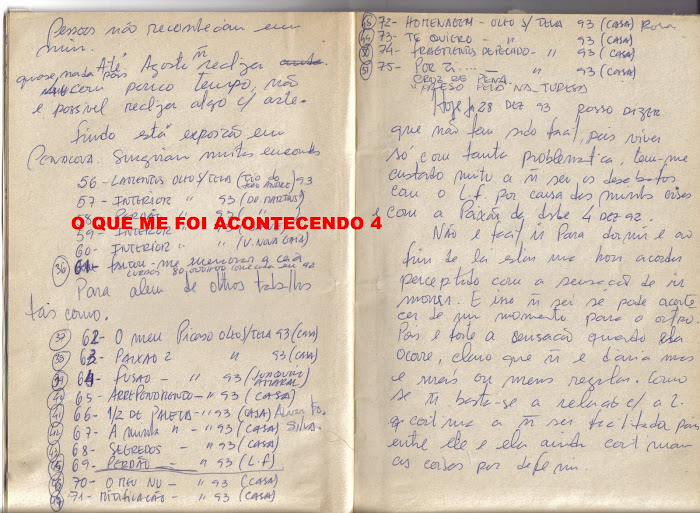 Pessoas não reconheciam em
mim.
Até Agosto ñ realizei
quase nada pois
com pouco tempo, não
é possível realizar algo c/ arte.
Findo está exposição em
Penacova. Surgiram muitas encomendas
56 - LAMENTOS OLEO S/TELA 93
57 - INTERIOR " 93 (DR. MARTINS)
58 - PERDÃO " 93
O QUE ME FOI ACONTECENDO 4
59 - INTERIOR " 93
60 - INTERIOR " (V. NOVA GAIA)
36 61 faltou-me mencionar a casa
Para além de outros trabalhos
tais como.
37 62 - O MEU PICASO OLEO S/TELA 93 (CASA)
38 63 - PAIXÃO 2 " 93 (CASA)
39 64 - FUSÃO - " 93 (JOAQUIM AMARAL)
40 65 - ARREPENDIMENTO - " 93 (CASA)
41 66 - 1/2 DE PALETA - " 93 (CASA)
42 67 - A MINHA " - " 93 (CASA)
68 - SEGREDOS - " 93 (CASA)
69 - PERDÃO - " 93 (L.F)
70 - O MEU NU - " 93 (CASA)
71 - MITIFICAÇÃO - " 93 (CASA)
72 - HOMENAGEM - OLEO S/TELA 93 (CASA) Rosa
73 - TE QUIERO - " 93 (CASA)
50 74 - FRAGMENTOS DE PECADO - " 93 (CASA)
51 75 - POR TI ..... " 93 (CASA)
CRUZ DE PENA.
PRESO PELO NATUREZA
Hoje 28 DEZ 93 posso DIZER
que não tem sido facil, pois viver
só com tanta problematica, tem-me
custado muito a ñ ser os desabafos
com o L.f. por causa das minhas crises
e com a Paixão de desde 4 DEZ 92.
Não é facil ir Para dormir e ao
fim de lá estar uma hora acordar
perceptado com a sensação de ir
morrer. E isso ñ sei se pode aconte
cer de um momento para o outro.
Pois é forte a sensação quando ela
ocorre, claro que ñ é diaria mas
é mais ou menos regular. Como
se ñ basta-se a relação c/ a L.
continua a ñ ser facilitada pois
entre ele e ela ainda continuam
as coisas por definir.